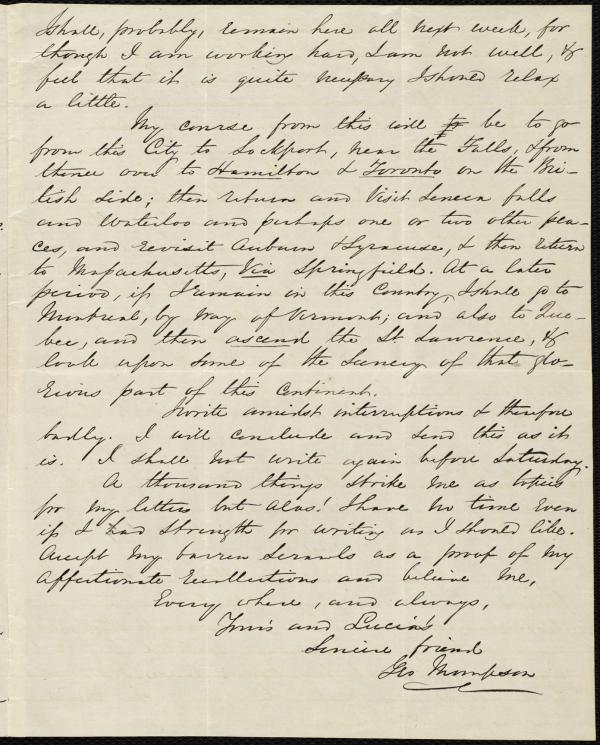 I shall, probably, remain here all next week, for
though I am working hard, I am not well, &
feel that it is quite necessary I should relax
a little.
My course from this will to be to go
from this City to Lockport, near the Falls, & from
thence over to Hamilton & Toronto on the Bri-
tish side; then return and visit Seneca falls
and Waterloo and perhaps one or two other pla-
ces, and revisit Auburn & Syracuse, & then return
to Massachusetts, Via Springfield. At a later
period, if I remain in this Country, I shall go to
Montreal, by way of Vermont; and also to Que-
bec, and then ascend the St Lawrence, &
look upon some of the Scenery of that glo-
rious part of this Continent.
I write amidst interruptions & therefore
badly. I will conclude and send this as it
is. I shall not write again before Saturday.
A thousand things strike me as topics
for my letters but alas! I have no time even
if I had strength for writing as I should like.
Accept my barren scrawls as a proof of my
affectionate recollections and believe me,
Every where, and always,
Yours and Lucia's
Sincere friend
Geo Thompson